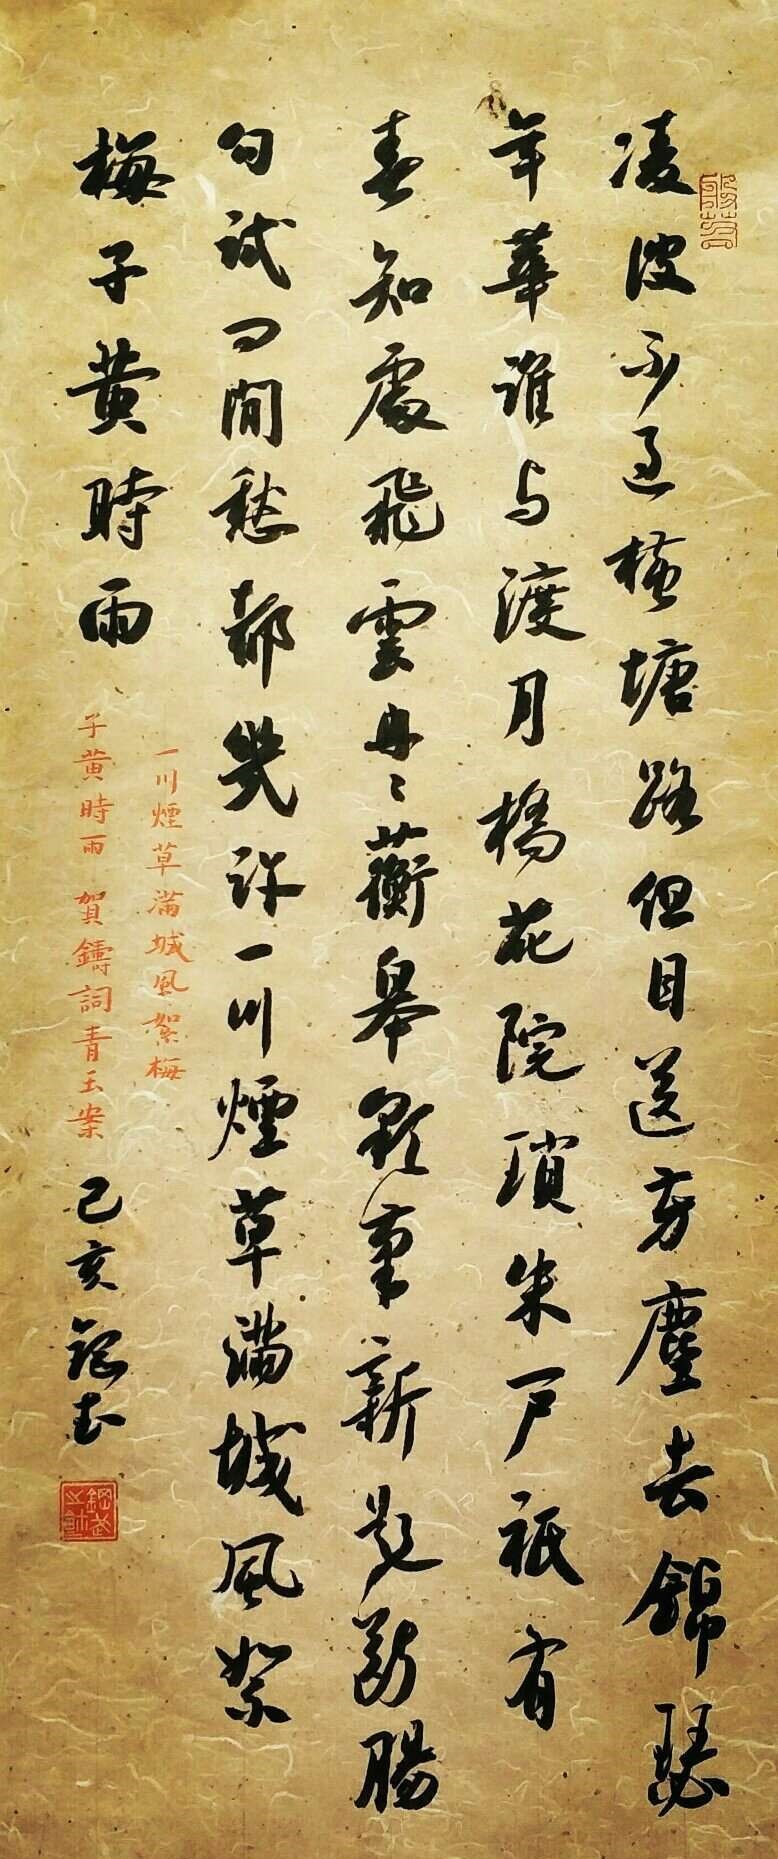 凌波不過横塘路但目送芳塵去錦瑟
年華誰与渡月橋花院瑣朱户祇有
春知處飛雲冉〻蘅皋彩筆新題斷腸
句試問閒愁都幾許一川煙草滿城風絮
梅子黄時雨
一川煙草滿城風絮梅
子黄時雨 賀鑄詞青玉案
己亥